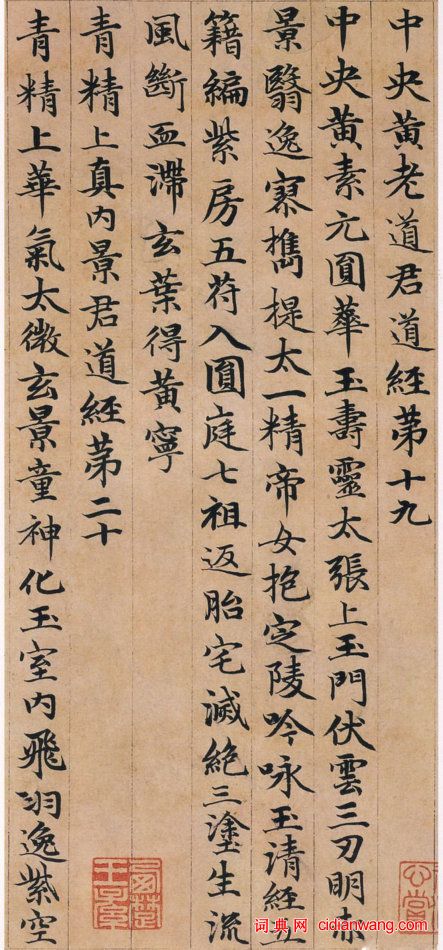 中央黄老道君道經苐十九
中央黄素元圎華玉壽靈太張上玉門伏雲三刃明赤
景翳逸寥携提太一精帝女抱定陵吟咏玉清經五
籍編紫房五苻入圎庭七祖返胎宅滅絶三塗生流
風斷血滯玄葉得黄寧
青精上真内景君道經苐二十
青精上華氣太微玄景童神化玉室内飛羽逸紫空
词典网 cidianwang.com